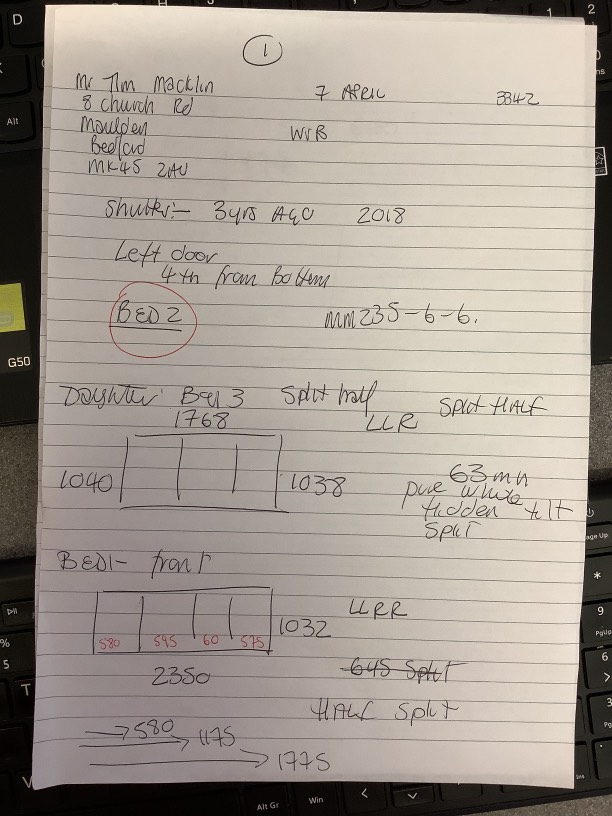 1
Mr Tim Macklin 7 APRIL 3842
8 church Rd
Maulden WVB
Bedford
MK45 2AU
Shutter:- 3yrs AGO 2018
Left door
4th from Bottom
BED2 MM235-6-6.
Daughter Bed 3 Split half LLR SPLIT HALF
1768
1040 1038
63mm
pure white
Hidden tilt
Split
BED1- front
LLRR
580 595 60 575 1032
2350
645 Split
HALF Split
580
1175
1775
D
Alt
G50
Alt Gr
Win